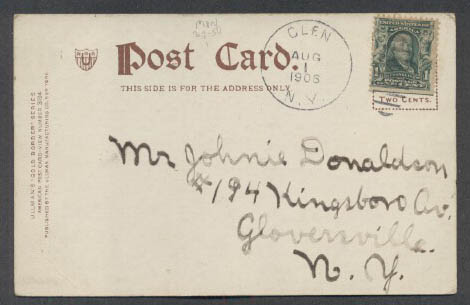 Post Card.
THIS SIDE IS FOR THE ADDRESS ONLY
CLEN
AUG
1
1906
N.Y.
TWO CENTS.
ULLMAN'S "GOLD BORDER" SERIES
AMERICAN POSTCARD-VIEW NUMBER 394
PUBLISHED BY THE ULLMAN MANUFACTURING CO. NEW YORK
Mr Johnie Donaldson
# 194 Kingsboro Av.
Gloversville
N. Y.